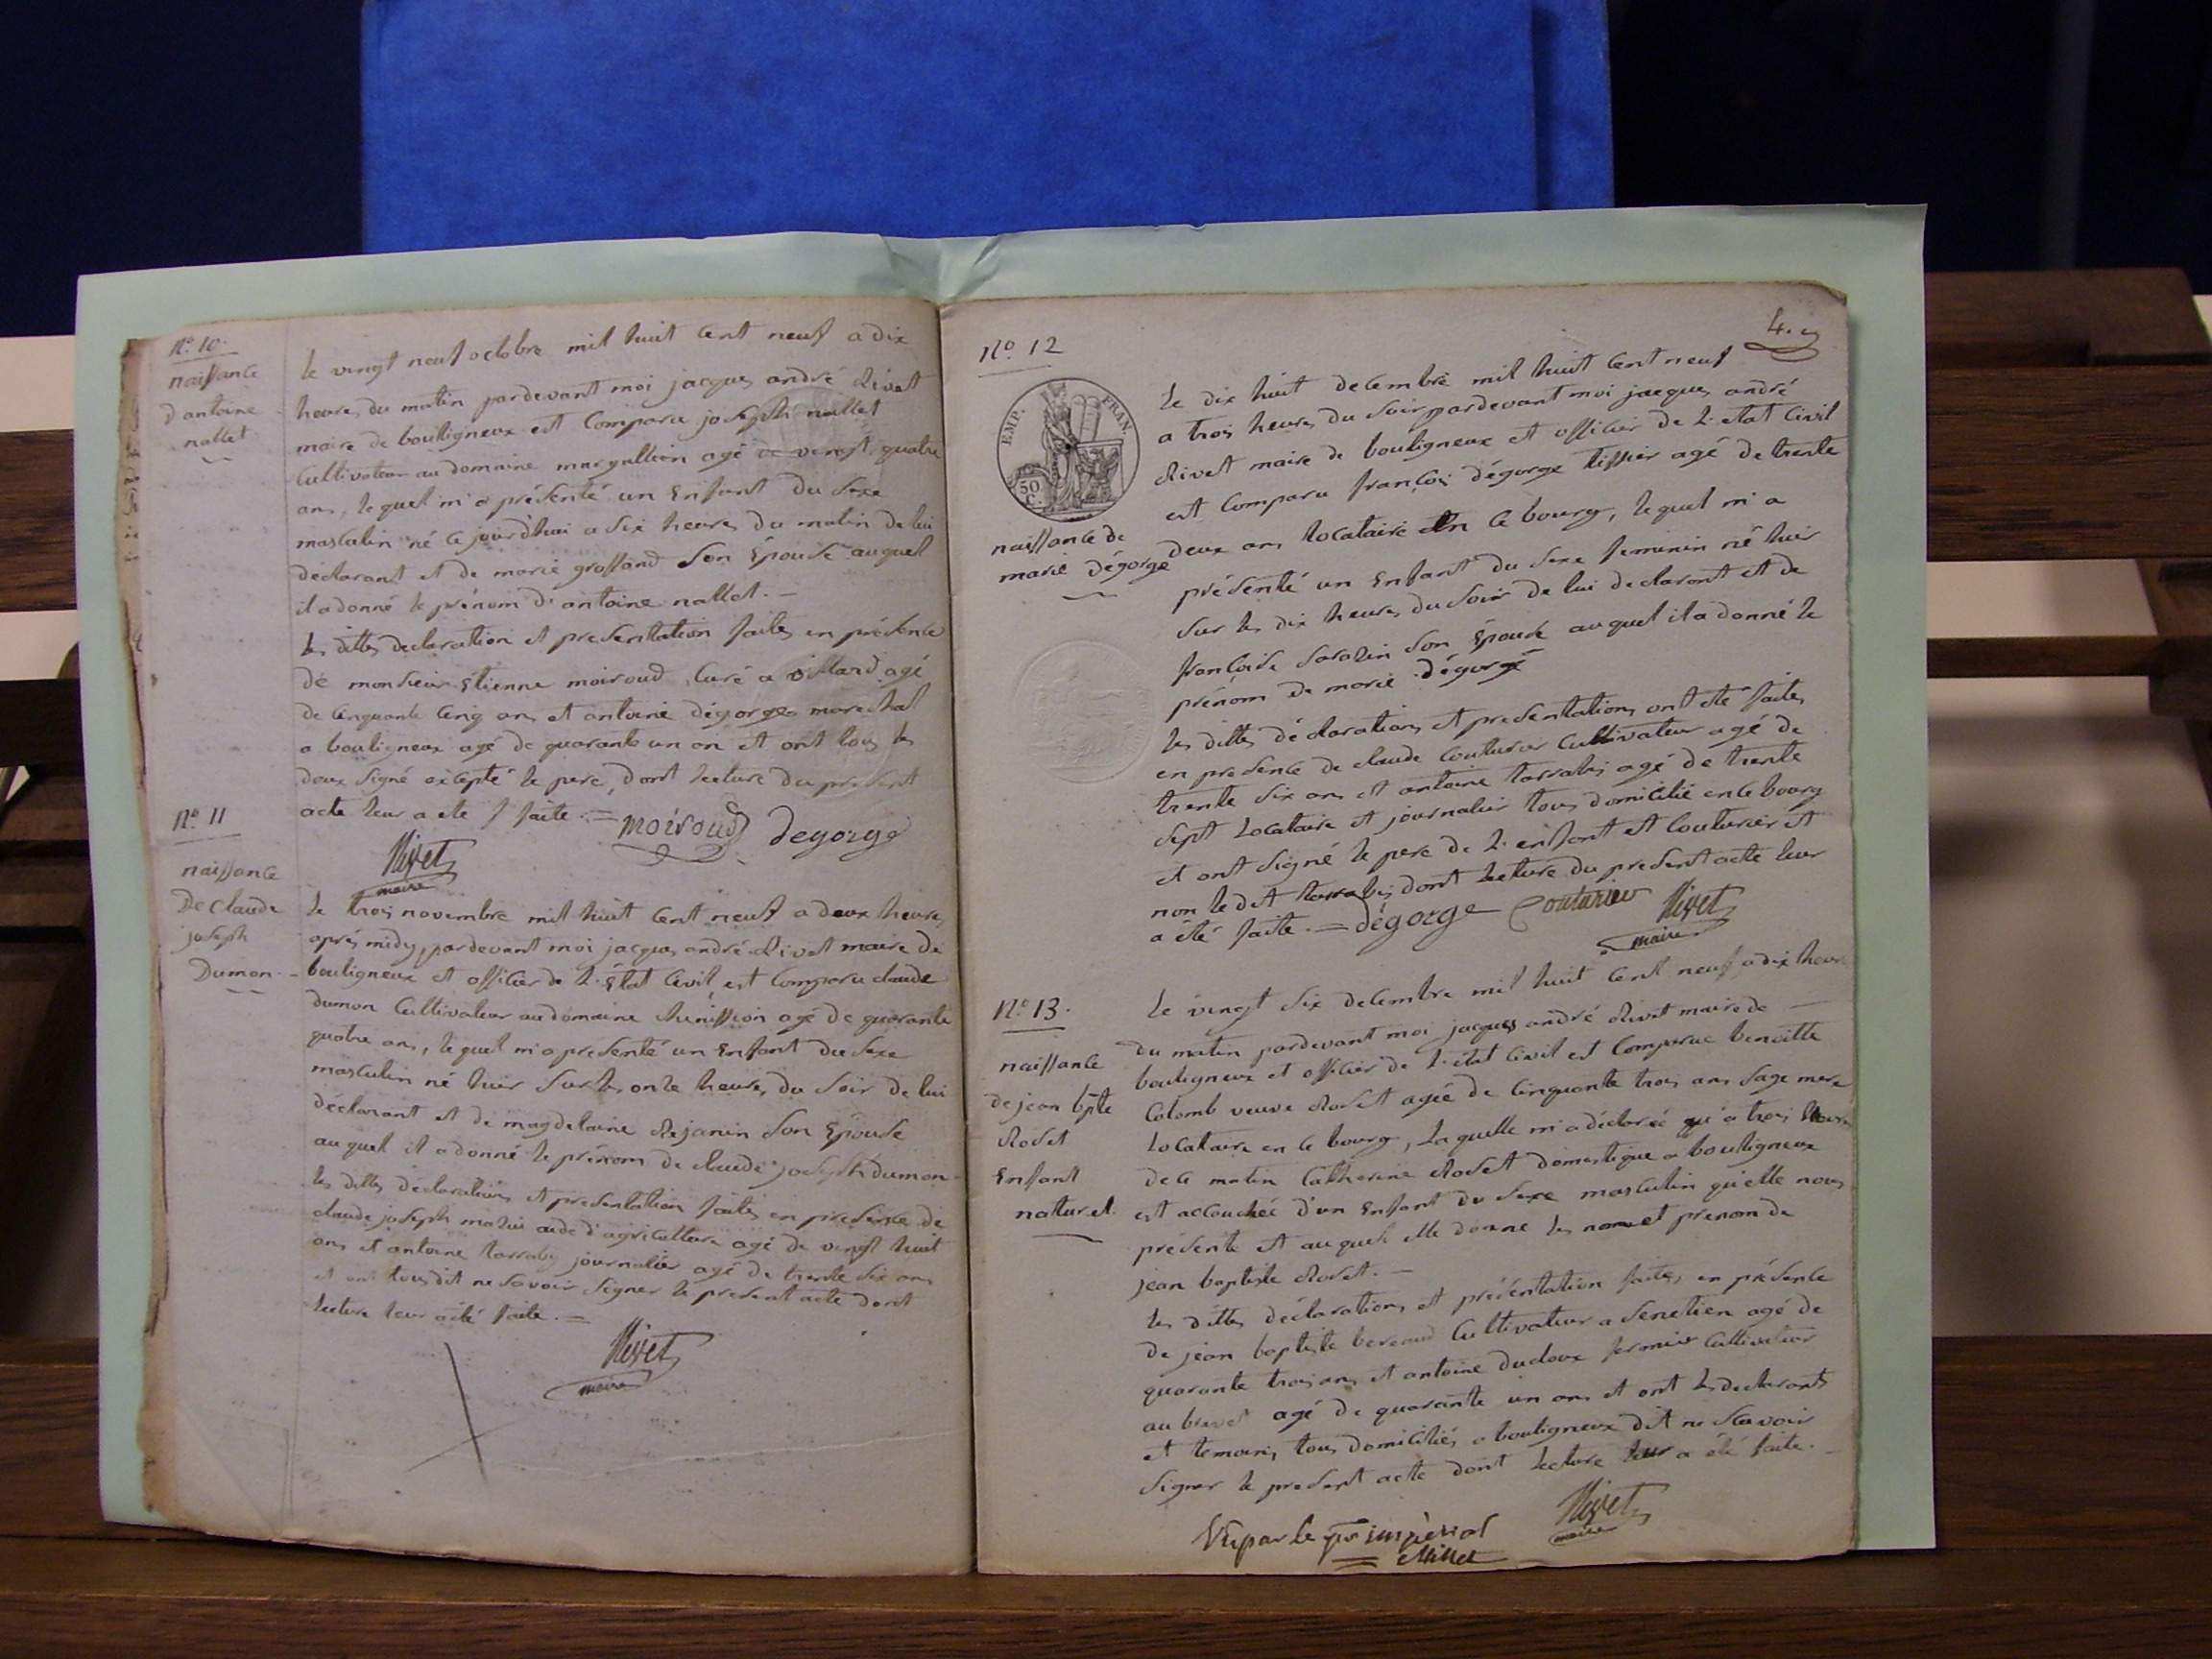 N.o 10.
naissance
d'antoine
nallet
le vingt neuf octobre mil huit cent neuf a dix
heures du matin pardevant moi jacques andré Rivet
maire de bouligneux est comparu joseph nallet
cultivateur au domaine agé de vingt quatre
ans, lequel m'a présenté un enfant du sexe
masculin né ce jourd'hui a six heures du matin de lui
déclarant et de marie grossand son épouse auquel
il a donné le prénom d'antoine nallet. —
les dittes declaration et presentation faites en présence
de monsieur Etienne moiroud, curé a agé
de cinquante cinq ans et antoine dégorges marechal
a bouligneux agé de quarante un an et ont tous les
deux signé excepté le pere, dont lecture du present
acte leur a été f faite. =
moiroud degorge
Rivet
maire
N.o 11
naissance
De claude
joseph
Dumon. -
le trois novembre mil huit cent neuf a deux heures
après midy, pardevant moi jacques andré Rivet maire de
bouligneux et officier de l'état civil est comparu claude
dumon cultivateur au domaine agé de quarante
quatre ans, lequel m'a presenté un enfant du sexe
masculin né hier sur les onze heures du soir de lui
déclarant et de magdelaine Rejanin son épouse
auquel il a donné le prénom de claude joseph dumon -
les dittes déclarations et presentation faites en presence de
claude joseph aide d'agriculture agé de vingt huit
ans et antoine tarraby journalier agé de trente six ans
et ont tous dit ne savoir signer le present acte dont
lecture leur a été faite. =
Rivet
maire
4.
N.o 12
EMP. FRAN.
50
C.
naissance de
marie dégorge
le dix huit decembre mil huit cent neuf
a trois heures du soir pardevant moi jacques andré
Rivet maire de bouligneux et officier de l'etat civil
est comparu françois dégorge tissier agé de trente
deux ans locataire en ce bourg, lequel m'a
présenté un enfant du sexe feminin né hier
sur les dix heures du soir de lui declarant et de
françoise sarazin son épouse auquel il a donné le
prénom de marie dégorge
les dittes déclarations et presentations ont été faites
en presence de claude couturier cultivateur agé de
trente six ans et antoine tarrabi agé de trente
sept locataire et journalier tous domicilié en ce bourg
et ont signé le pere de l'enfant et couturier et
non ledit tarrabi dont lecture du present acte leur
a été faite. = dégorge Couturier Rivet
maire
N.o 13.
naissance
de jean bpte
Roset
Enfant
naturel.
le vingt six decembre mil huit cent neuf a dix heures
du matin pardevant moi jacques andré Rivet maire de —
bouligneux et officier de l'état civil est comparue benoitte
Colomb veuve Roset agée de cinquante trois ans sage mere
locataire en ce bourg, laquelle m'a déclarée qu'a trois heures
de ce matin Catherine Roset domestique a bouligneux
est accouchée d'un enfant du sexe masculin qu'elle nous
présente et auquel elle donne les nom et prenom de
jean baptiste Roset. —
les dittes déclarations et présentation faites, en présence
de jean baptiste beraud cultivateur a agé de
quarante trois ans et antoine ducloux fermier cultivateur
au agé de quarante un ans et ont les declarants
et temoins, tous domiciliés a bouligneux dit ne scavoir
signer le present acte dont lecture leur a été faite. —
Rivet
maire
Vu par le pr impérial
Millet